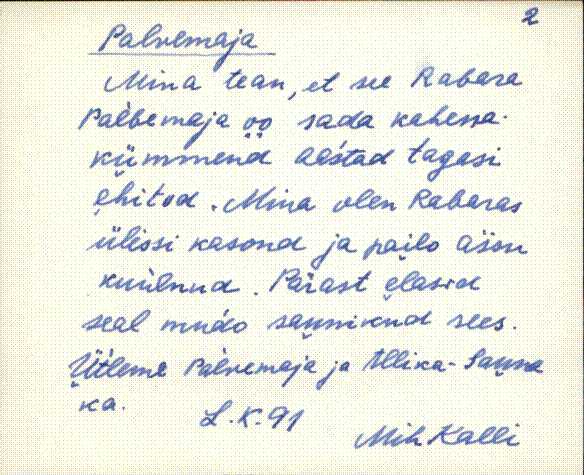 2
Palvemaja
Mina tean, et see Rabara
Palvemaja o̤o̤ sada kahessa-
kümmend aéstad tagasi
ehitod. Mina olen Rabaras
ülissi kasond ja pailo äson
kuulnud. Pärast elasid
seal mudo saunikud sees.
Ütleme Palvemaja ja Allika-Sauna
ka.
L.K. 91
Mih Kalli